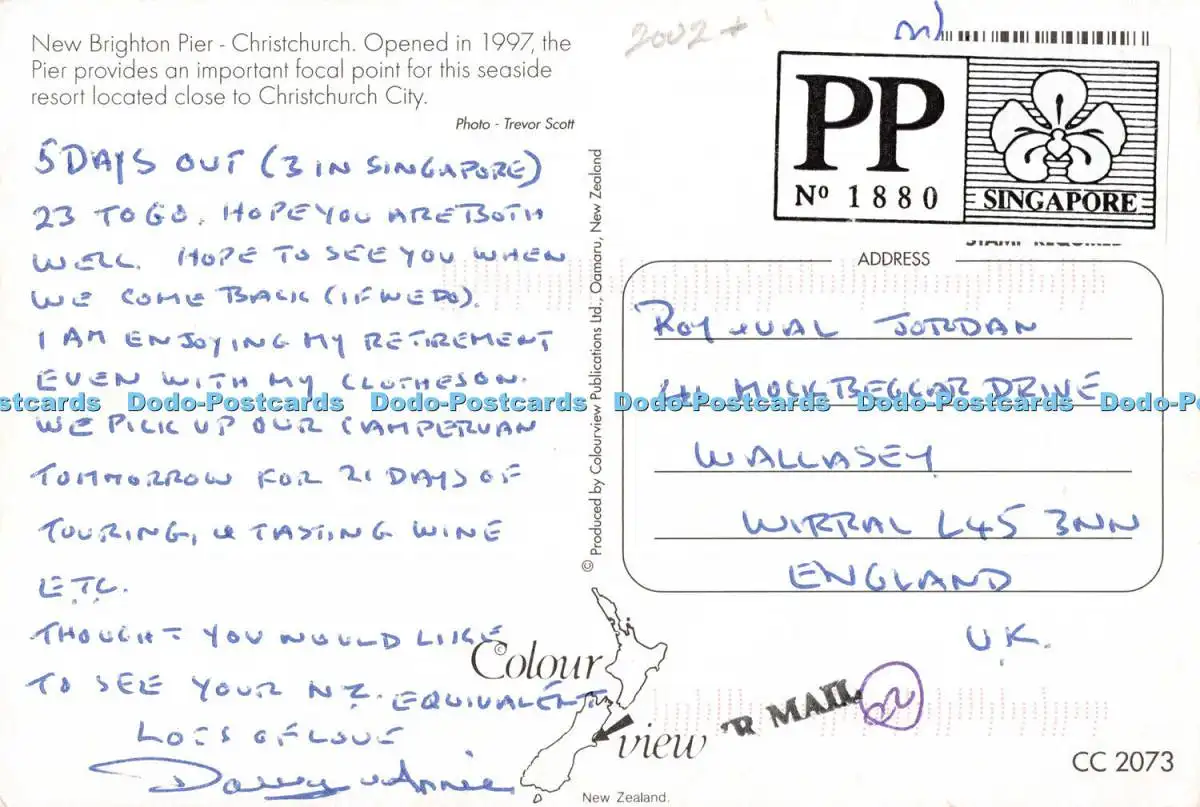 New Brighton Pier - Christchurch. Opened in 1997, the
Pier provides an important focal point for this seaside
resort located close to Christchurch City.
Photo - Trevor Scott
5 DAYS OUT (3 IN SINGAPORE)
23 TO GO. HOPE YOU ARE BOTH
WELL. HOPE TO SEE YOU WHEN
WE COME BACK (IF WE DO).
I AM ENJOYING MY RETIREMENT
EVEN WITH MY CLOTHES ON.
WE PICK UP OUR CAMPERVAN
TOMMORROW FOR 21 DAYS OF
TOURING, & TASTING WINE
ETC.
THOUGHT YOU WOULD LIKE
TO SEE YOUR N.Z. EQUIVALENT
LOTS OF LOVE
& Annie
© Produced by Colourview Publications Ltd., Oamaru, New Zealand
2002 +
PP
Nº 1880
SINGAPORE
STAMP REQUIRED
ADDRESS
ROY & VAL JORDAN
MOCKBEGGAR DRIVE
WALLASEY
WIRRAL L45 3NN
ENGLAND
U.K.
R MAIL
©
Colour
view
New Zealand.
CC 2073
Dodo-Postcards Dodo-Postcards Dodo-Postcards Dodo-Postcards